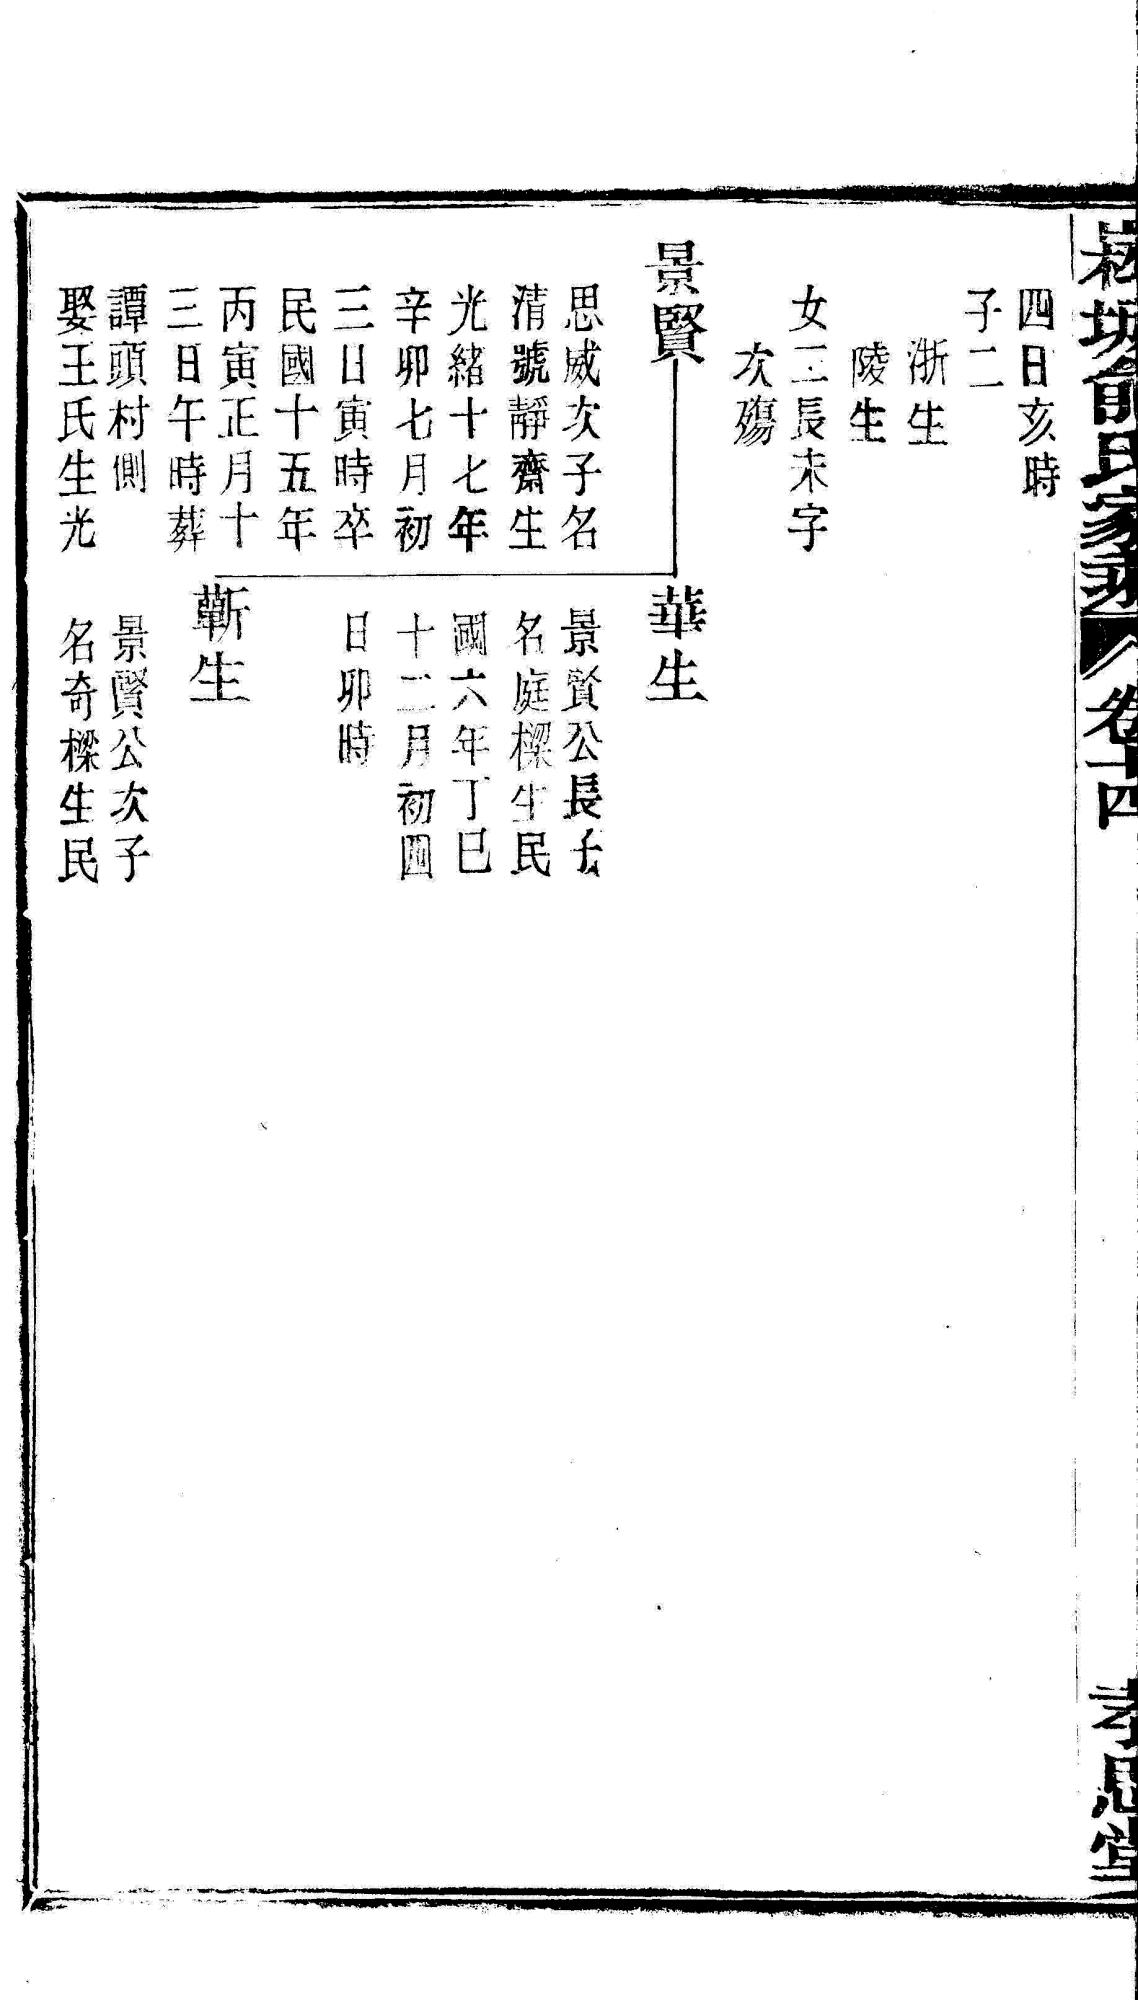 四日亥時
子二
浙生
陵生
女二長未字
次殤
景賢
思威次子名
清號靜齋生
光緒十七年
辛卯七月初
三日寅時卒
民國十五年
丙寅正月十
三日午時葬
譚頭村側
娶王氏生光
華生
景賢公長子
名庭樑生民
國六年丁巳
十二月初四
日卯時
蘄生
景賢公次子
名奇樑生民
俞氏家乘
卷十四
孝思堂